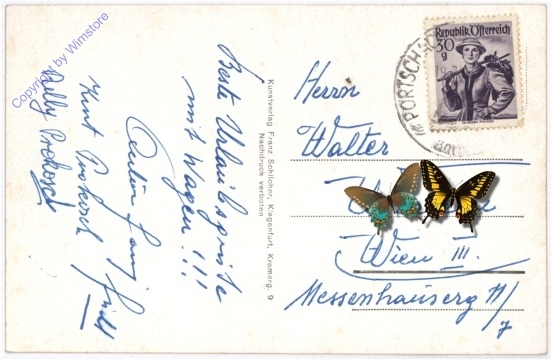 Copyright by Wimstore
Beste Urlaubsgrüße
mit Wagen !!!
Kurt Prokosch
Nelly Prokosch
Kunstverlag Franz Schilcher, Klagenfurt, Kramerg. 9
Nachdruck verboten
Republik Österreich
30
g
PÖRTSCH
Herrn
Walter
Wien III.
Messenhauserg 11/
7